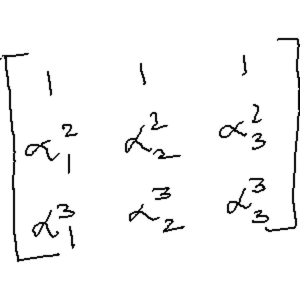 1 1 1
α₁² α₂² α₃²
α₁³ α₂³ α₃³